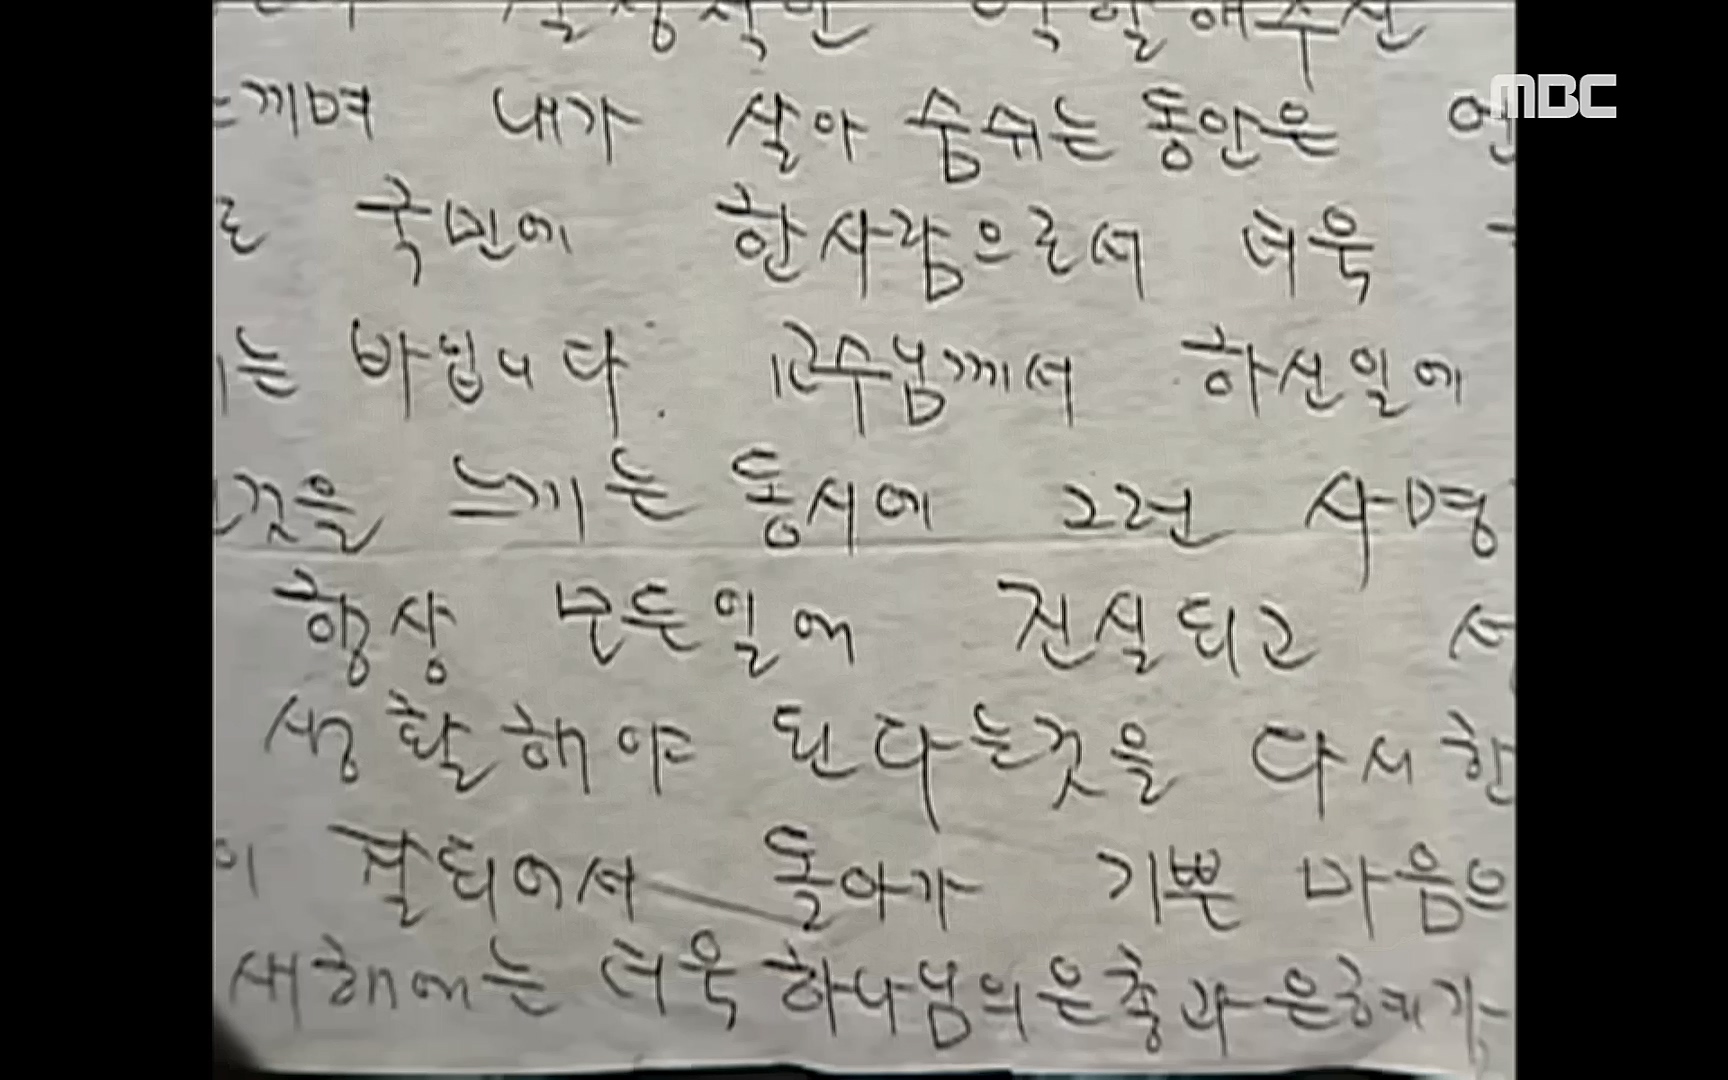 MBC
끼며 내가 살아 숨쉬는 동안은
국민에 한사람으로서 더욱
는 바입니다 교수님께서 하신일에
것을 느끼는 동시에 그런 사명
항상 모든일에 진실되고
생활해야 된다는것을 다시한
이 잘되어서 돌아가 기쁜 마음으
새해에는 더욱 하나님의 은총과 은혜가